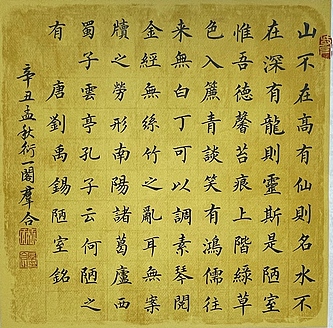 山不在高有仙則名水不
在深有龍則靈斯是陋室
惟吾德馨苔痕上階綠草
色入簾青談笑有鴻儒往
来無白丁可以調素琴閱
金經無絲竹之亂耳無案
牘之勞形南陽諸葛廬西
蜀子雲亭孔子云何陋之
有 唐劉禹錫陋室銘
辛丑孟秋